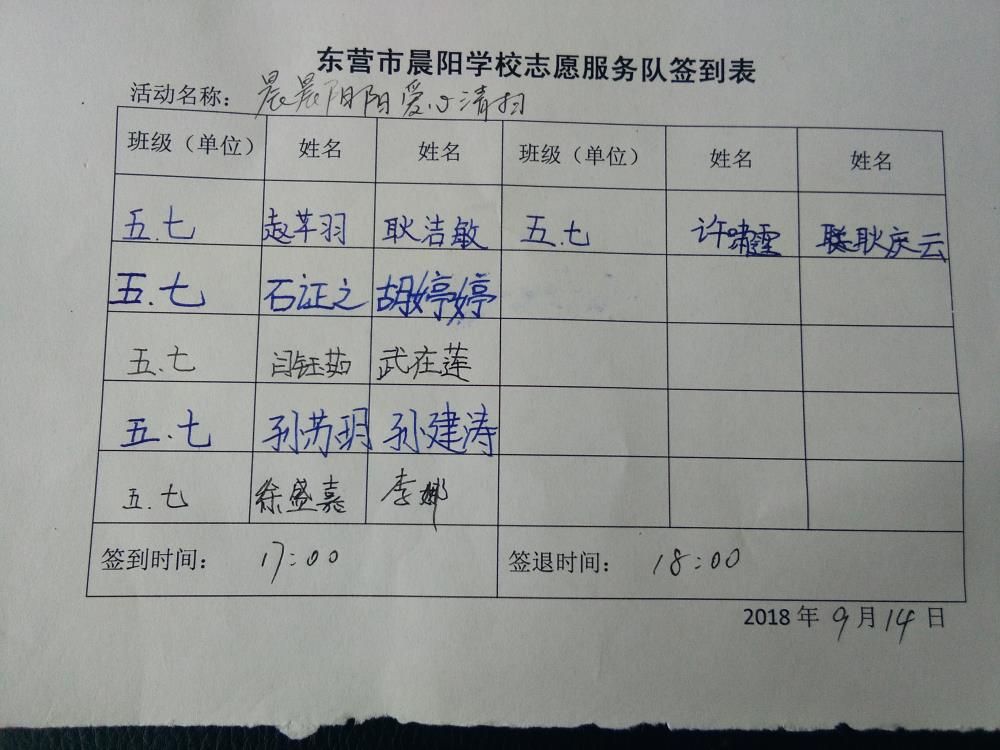 东营市晨阳学校志愿服务队签到表
活动名称: 晨晨阳阳爱心清扫
班级（单位） 姓名 姓名 班级（单位） 姓名 姓名
五.七 赵芊羽 耿洁敏 五.七 许啸霆 耿庆云
五.七 石证之 胡婷婷
五.七 闫钰茹 武在莲
五.七 孙苏玥 孙建涛
五.七 徐盛嘉 李娜
签到时间: 17:00 签退时间: 18:00
2018年9月14日